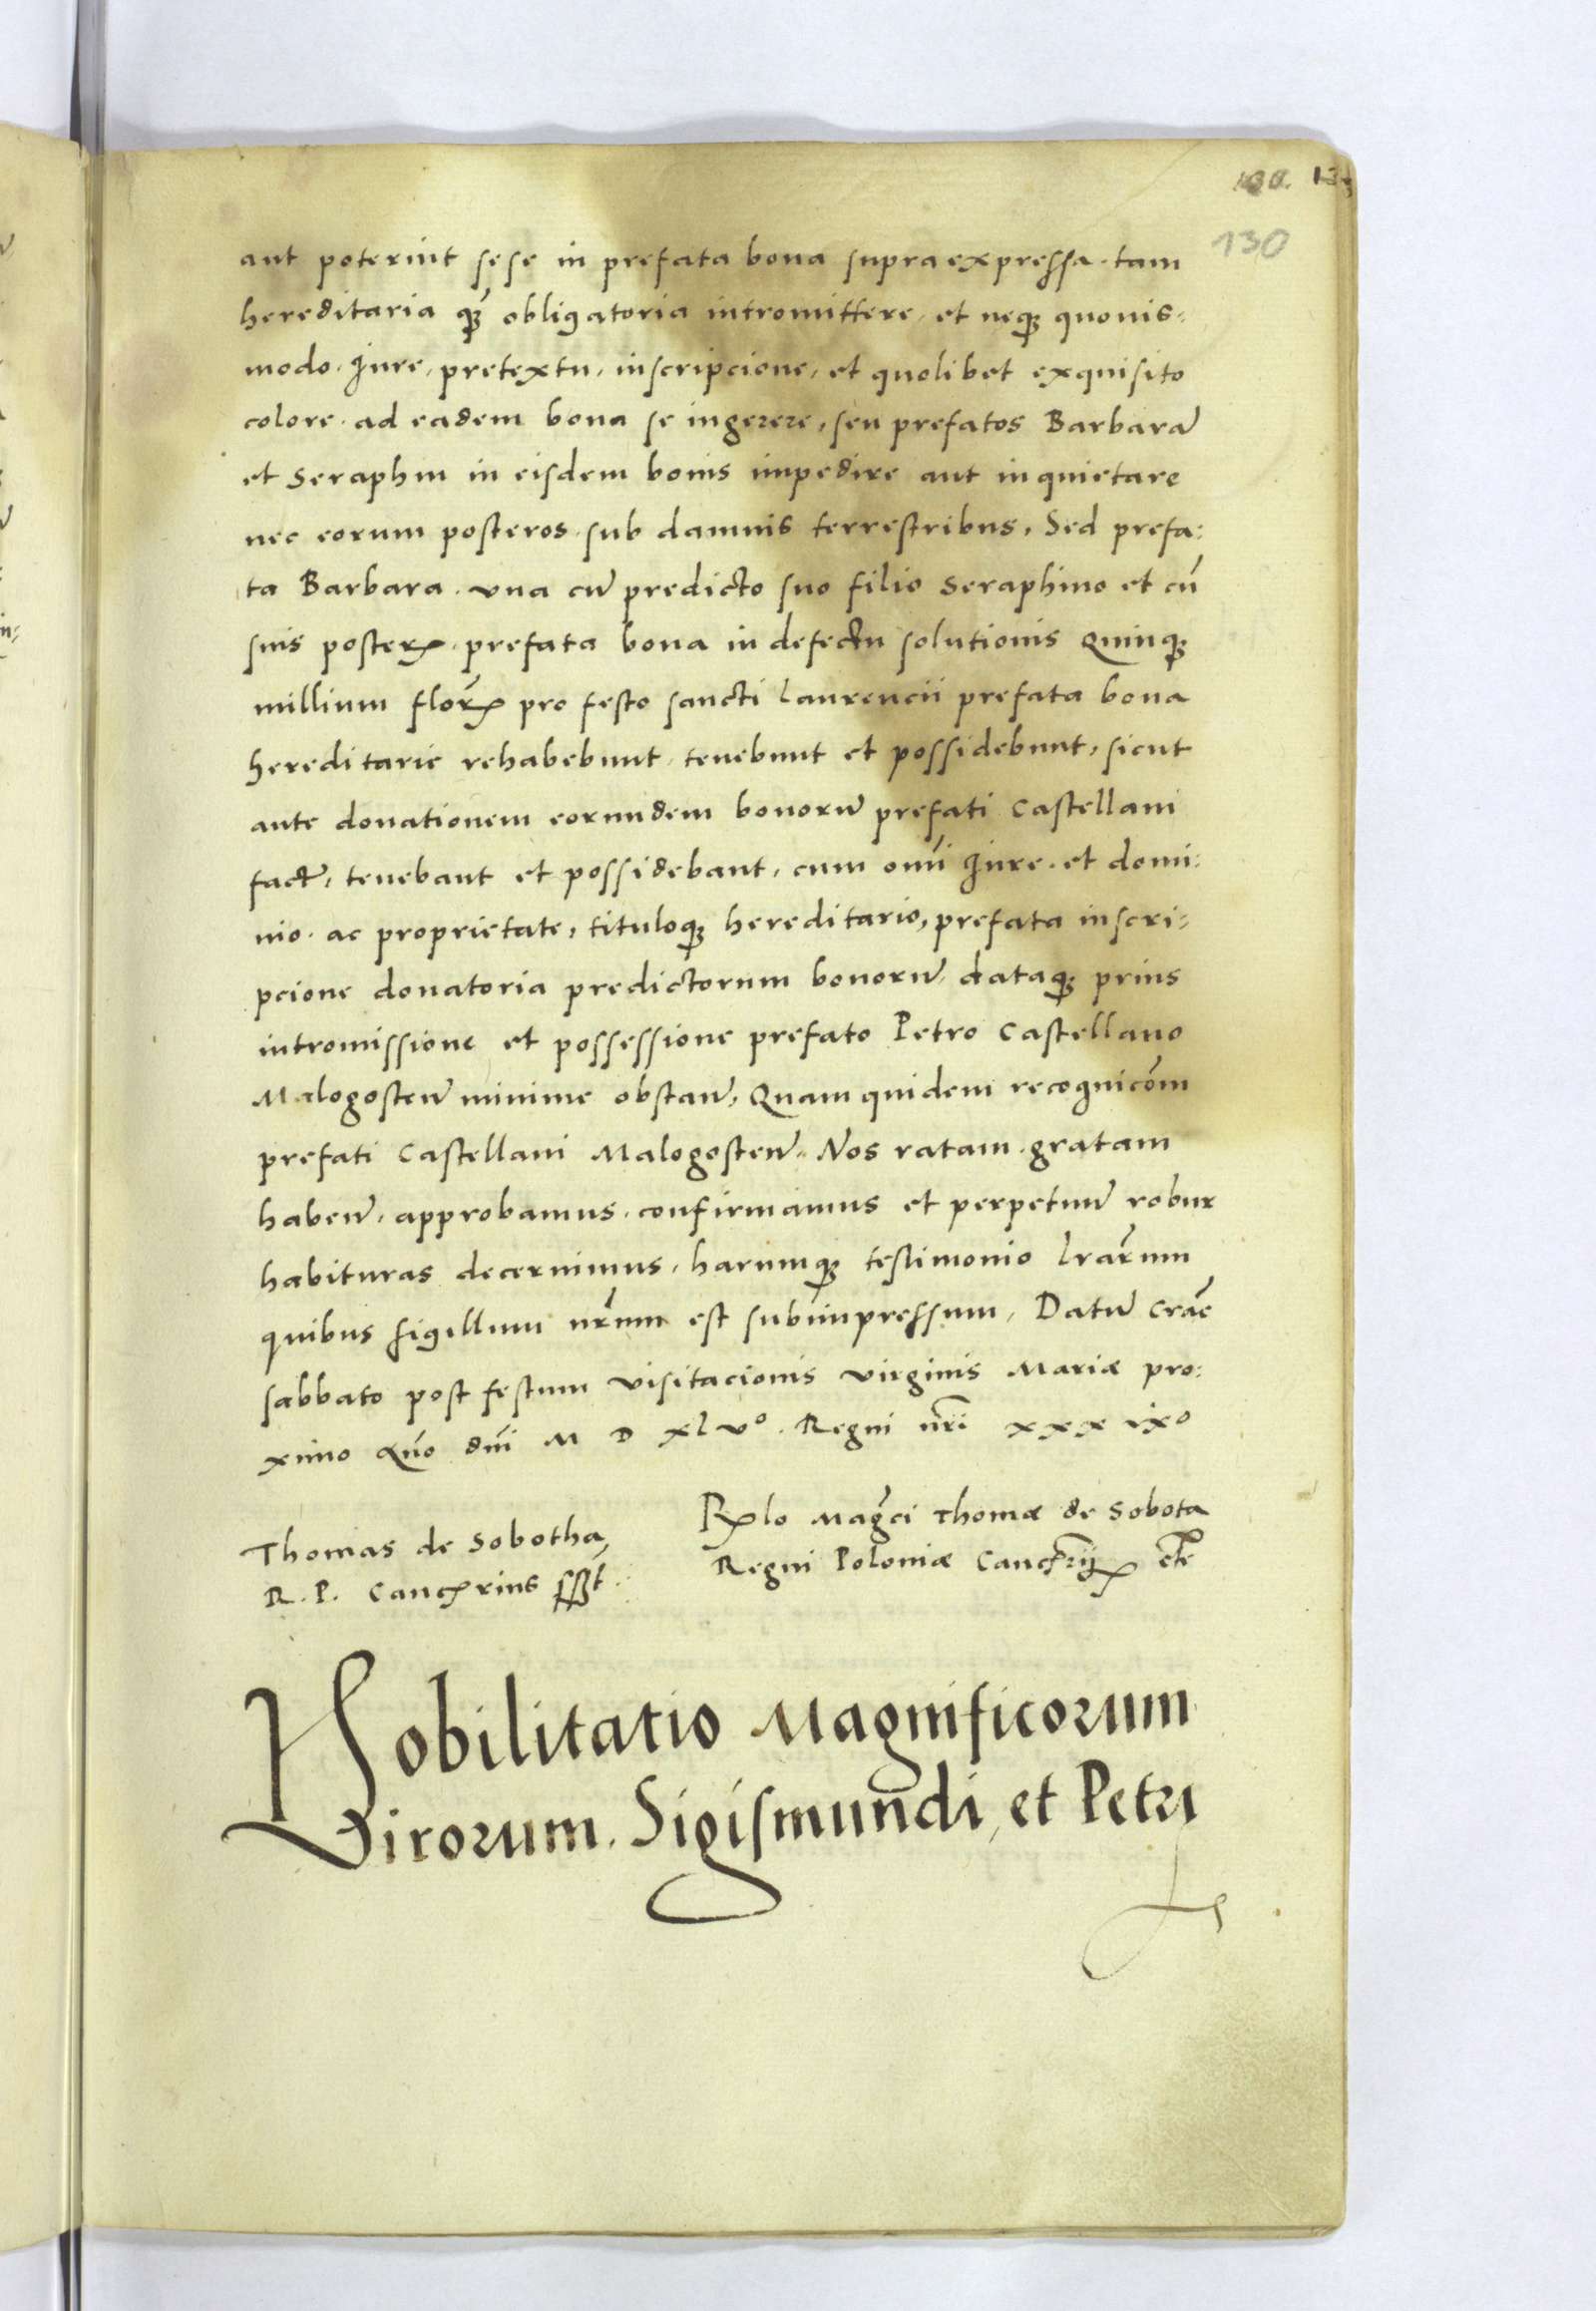 130. 13
130
aut poterint sese in prefata bona supra expressa. tam
hereditaria q̃ꝫ obligatoria intromittere, et neqꝫ quouis-
modo. Jure, pretextu, inscripcione, et quolibet exquisito
colore. ad eadem bona se ingerere, seu prefatos Barbarã
et Seraphin in eisdem bonis impedire aut inquietare
nec eorum posteros. sub damnis terrestribus, Sed prefa:
ta Barbara. vna cũ predicto suo filio Seraphino et cũ
suis posterꝝ. prefata bona in defectu solutionis Quinqꝫ
millium florꝝ pro festo sancti Laurencii prefata bona
hereditarie rehabebunt, tenebunt et possidebunt, sicut
ante donationem eorundem bonorũ prefati Castellani
fact̃, tenebant et possidebant, cum om̃i Jure. et domi:
nio. ac proprietate, tituloqꝫ hereditario, prefata inscri-
pcione donatoria predictorum bonorũ, dataqꝫ prius
intromissione et possessione prefato Petro Castellano
Malogosteñ minime obstañ, Quam quidem recognicõm
prefati Castellani Malogosteñ. Nos ratam. gratam
habeñ. approbamus. confirmamus et perpetuũ robur
habituras decernimus, harumqꝫ testimonio lrãrum
quibus sigillum nr̃um est subimpressum, Datũ Crac̃
sabbato post festum visitacionis virginis Mariæ pro:
ximo Año dñi M D xlvº. Regni nr̃i xxxixº
Thomas de Sobotha
R. P. Cancꝝrius sſt
Rꝝlo Mag̃ci Thomæ de Sobota
Regni Poloniæ Canc̃rijꝝ etc̃
Nobilitatio Magnificorum
Virorum. Sigismundi, et Petri